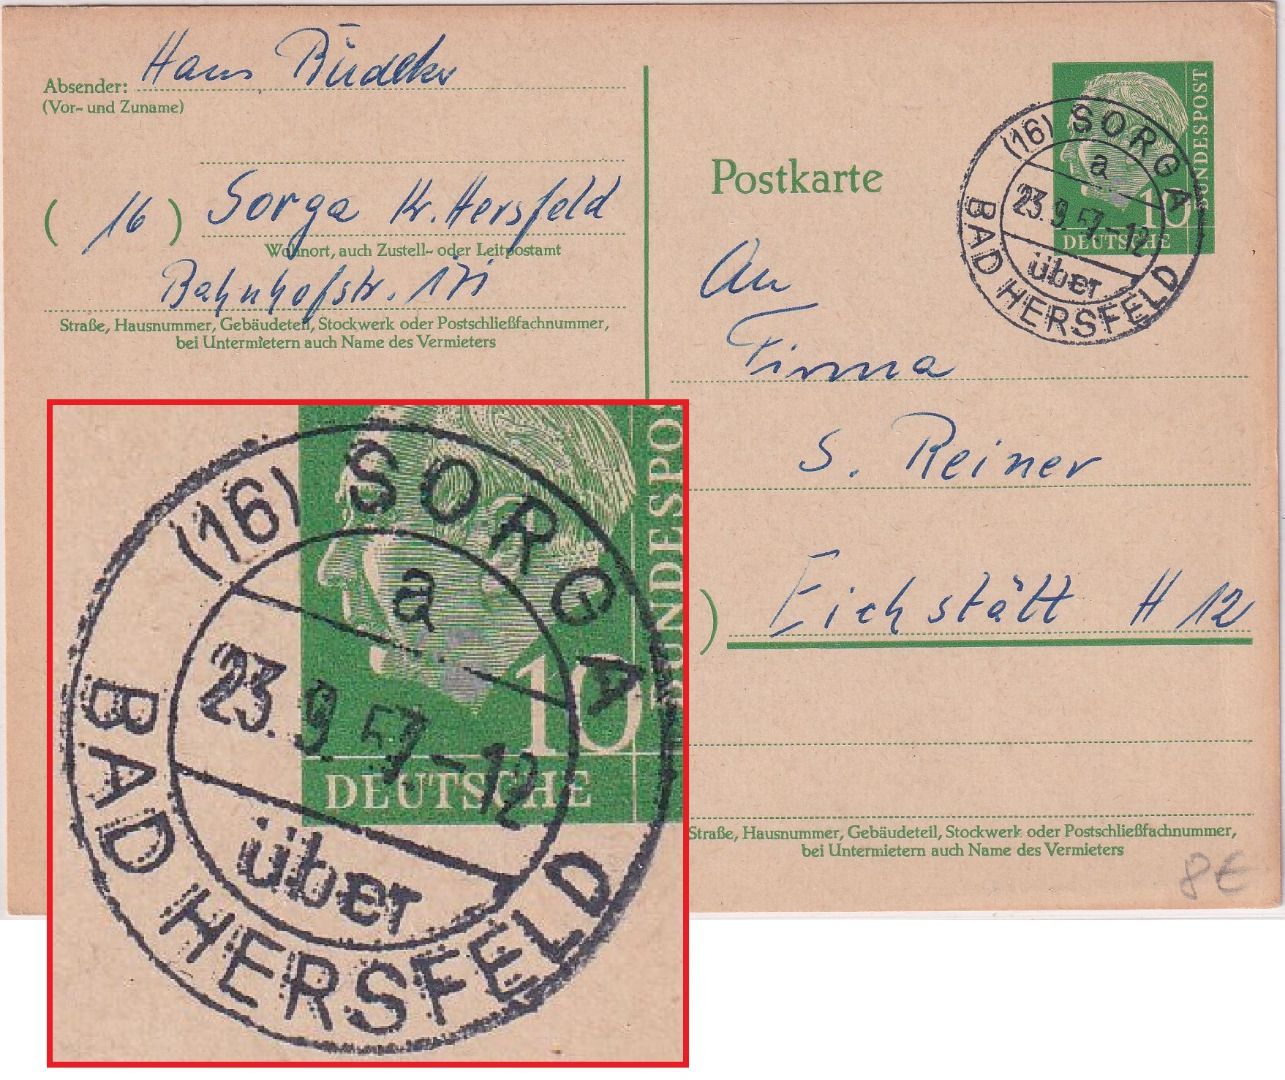 Absender: Hans Büdeker
(Vor- und Zuname)
( 16 ) Sorga Kr. Hersfeld
Wohnort, auch Zustell- oder Leitpostamt
Bahnhofstr. 171
Straße, Hausnummer, Gebäudeteil, Stockwerk oder Postschließfachnummer,
bei Untermietern auch Name des Vermieters
Postkarte
BUNDESPOST
10
DEUTSCHE
(16) SORGA
a
23.9.57-12
über
BAD HERSFELD
An
Firma
S. Reiner
) Eichstätt H 12
Straße, Hausnummer, Gebäudeteil, Stockwerk oder Postschließfachnummer,
bei Untermietern auch Name des Vermieters
8€
(16) SORGA
a
23.9.57-12
über
BAD HERSFELD
10
DEUTSCHE
BUNDESPOS